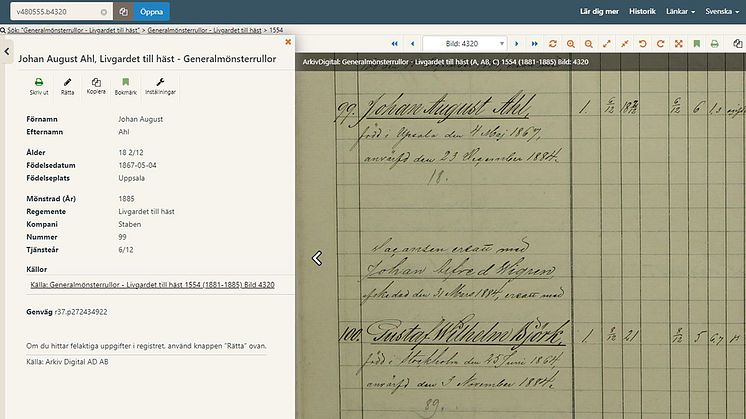 v480555.b4320
Öppna
Lär dig mer Historik Länkar Svenska
Sök: "Generalmönsterrullor - Livgardet till häst" > Generalmönsterrullor - Livgardet till häst > 1554
Johan August Ahl, Livgardet till häst - Generalmönsterrullor
Skriv ut Rätta Kopiera Bokmärk Inställningar
Förnamn Johan August
Efternamn Ahl
Ålder 18 2/12
Födelsedatum 1867-05-04
Födelseplats Uppsala
Mönstrad (År) 1885
Regemente Livgardet till häst
Kompani Staben
Nummer 99
Tjänsteår 6/12
Källor
Källa: Generalmönsterrullor - Livgardet till häst 1554 (1881-1885) Bild 4320
Genväg r37.p272434922
Om du hittar felaktiga uppgifter i registret, använd knappen "Rätta" ovan.
Källa: Arkiv Digital AD AB
Bild: 4320
ArkivDigital: Generalmönsterrullor - Livgardet till häst (A, AB, C) 1554 (1881-1885) Bild: 4320
99. Johan August Ahl, 1. 6/12 18 2/12 6/12 6 1,3
född i Upsala den 4 Maj 1867,
anvärfd den 23 December 1884.
18.
Vacansen ersatt med
Johan Alfred Wigren
afskedad den 31 Mars 1884, ersatt med
100. Gustaf Wilhelm Björk, 1. 8/12 21 8/12 5 6,7
född i Stockholm den 25 Juni 1864,
anvärfd den 3 November 1884.
89.